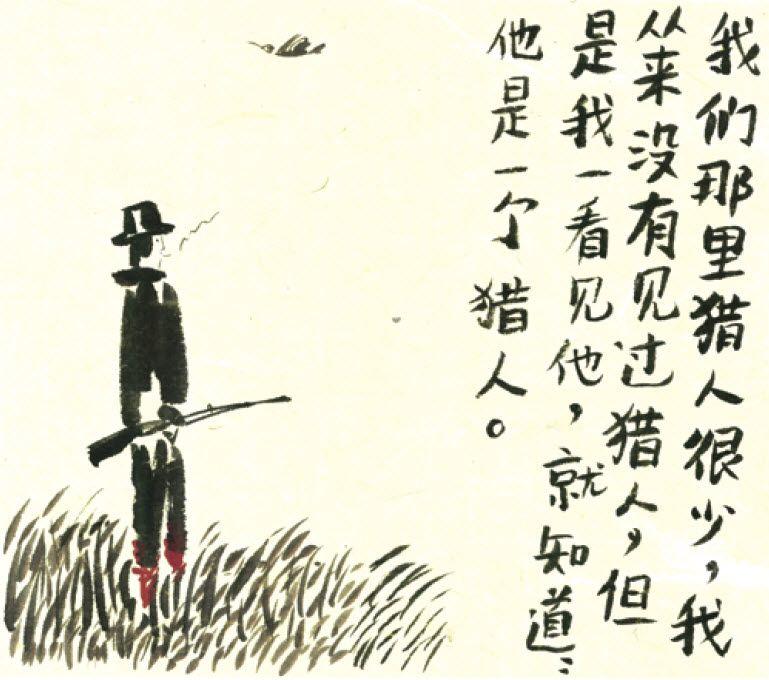 我们那里猎人很少，我
从来没有见过猎人，但
是我一看见他，就知道：
他是一个猎人。